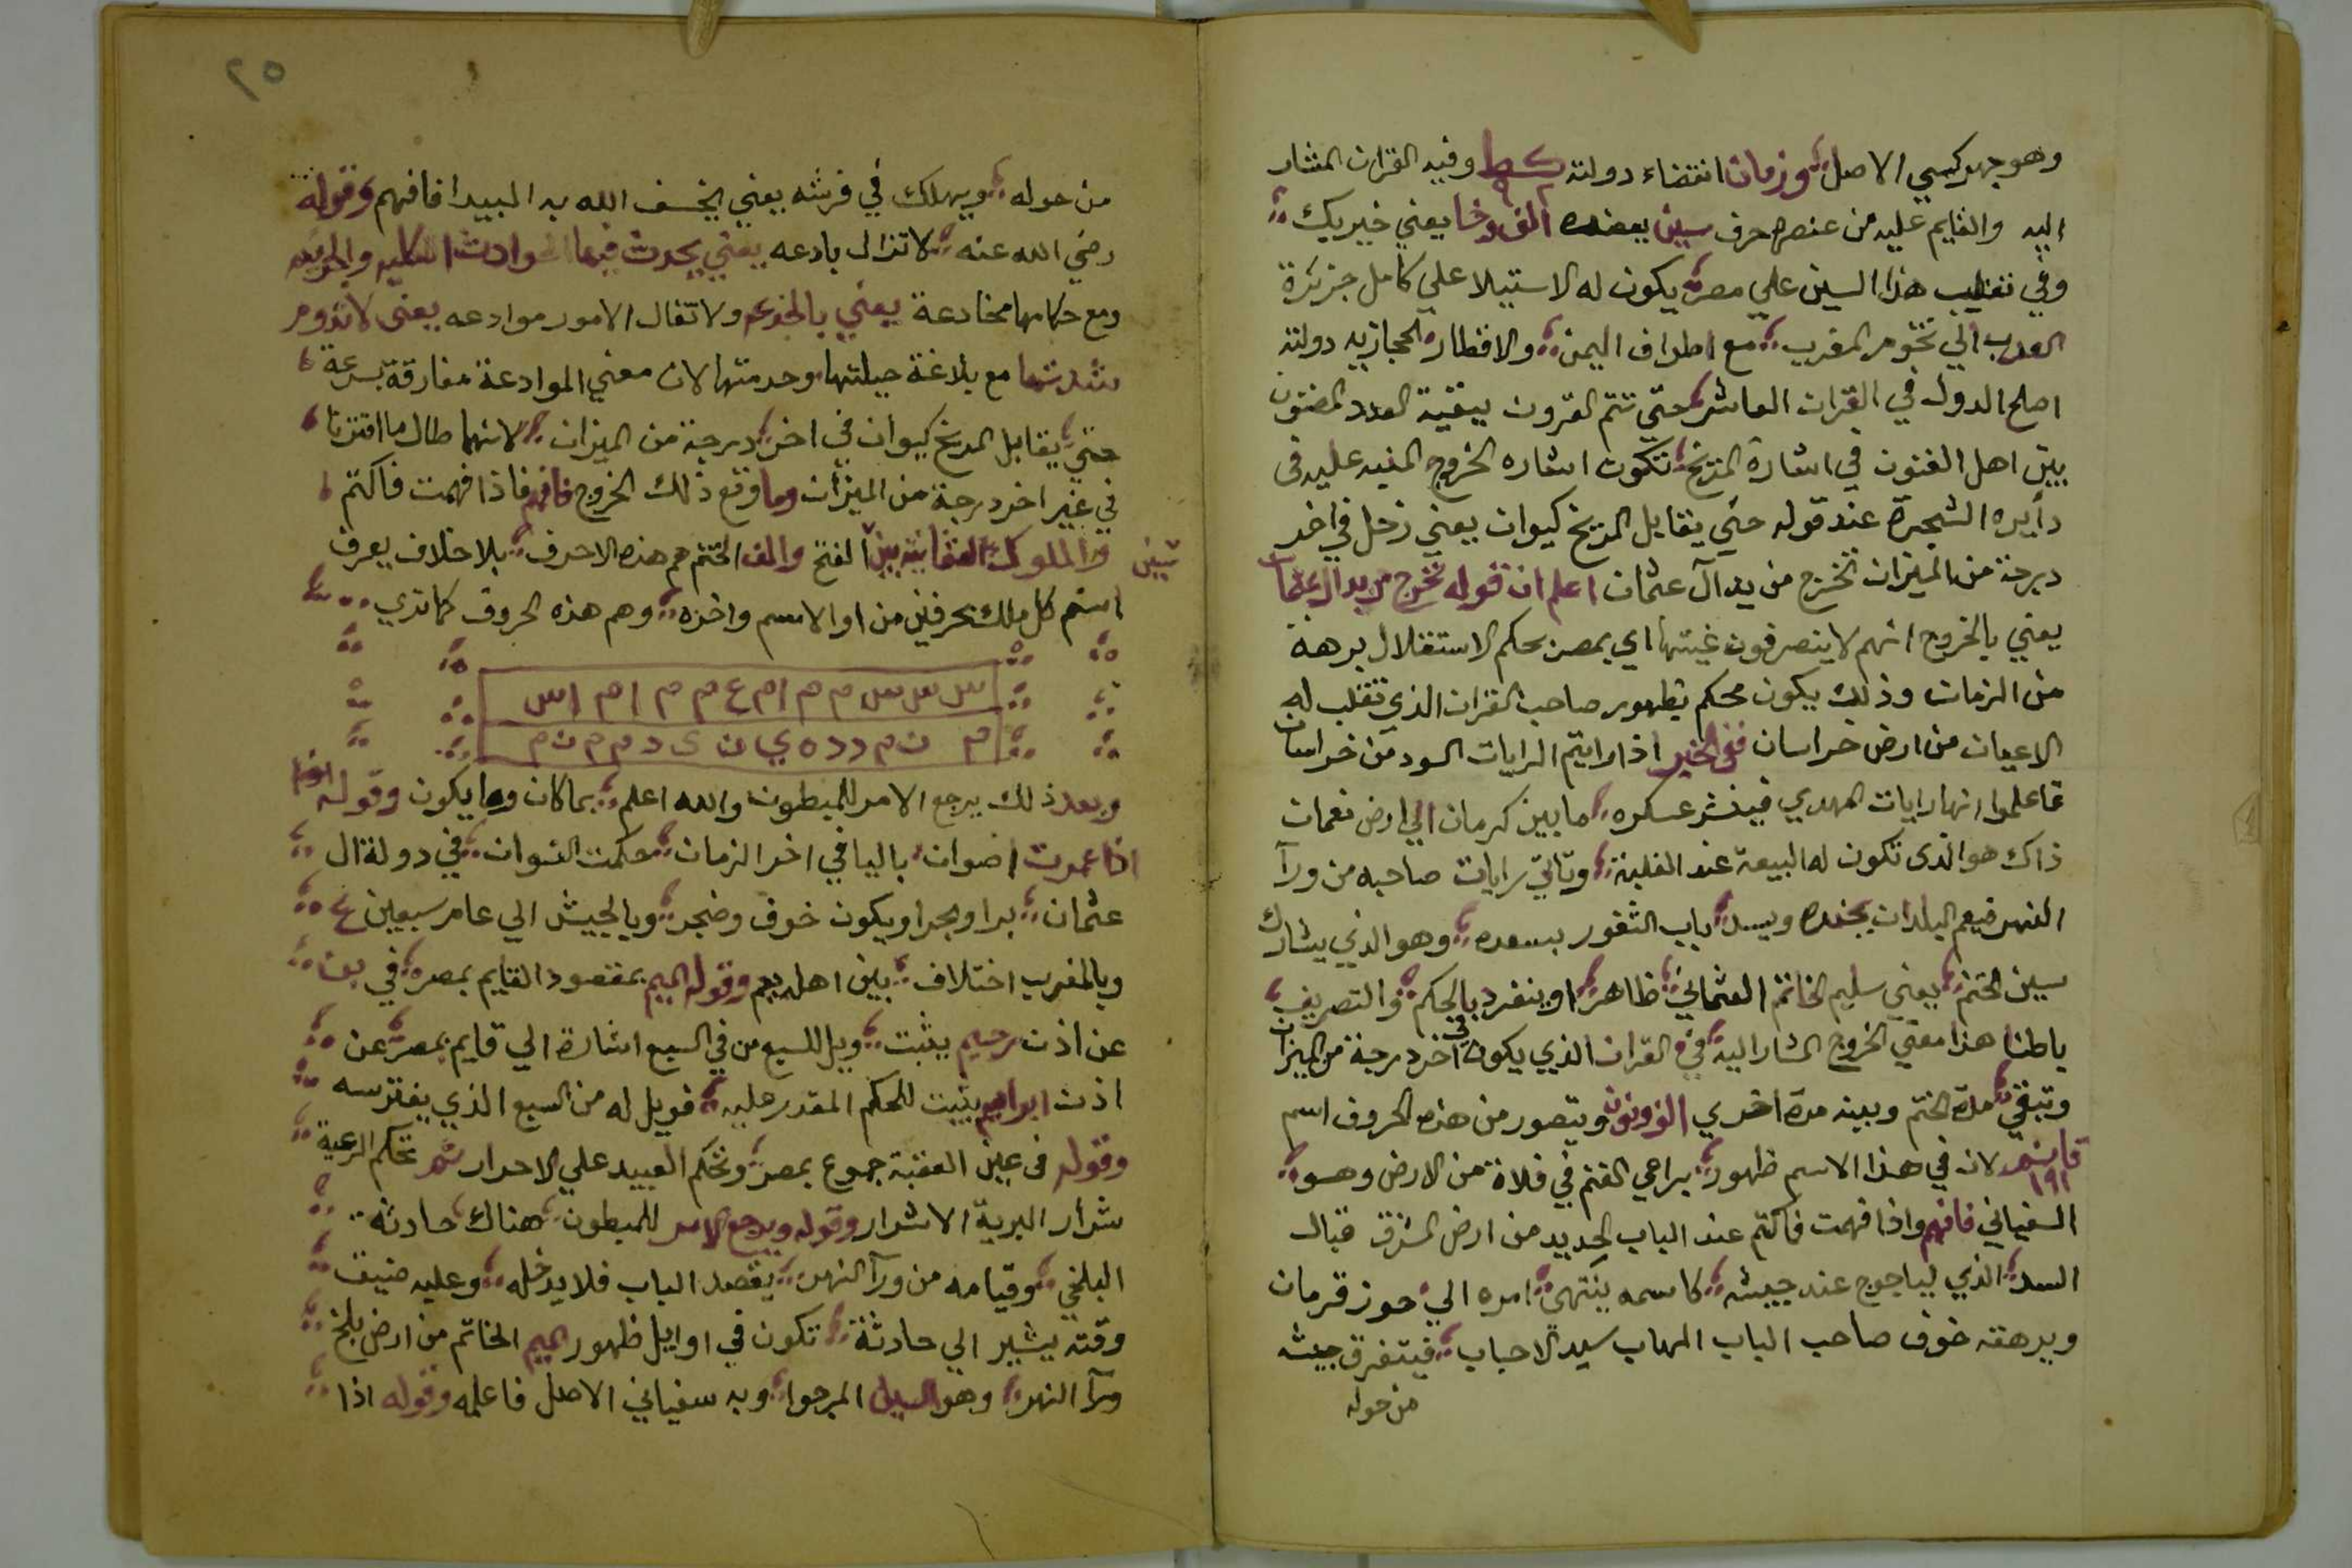 وهو جهركسي الاصل وزمان انتضاء دولته كط وفيه القران المشار
اليه والقايم عليه من عنصره حرف سين يعضده الف وخا يعني خيربك
وفي تغليب هذا السين علي مصر يكون له الاستيلا علي كامل جزيرة
العرب الي تخوم المغرب مع اطراف اليمن والاقطار الحجازيه دولته
اصلح الدول في القران العاشر حتي تتم القرون ببقية العدد المضنون
بين اهل الفنون في اشارة المريخ تكون اشاره الخروج المنبه عليه في
دايره الشجرة عند قوله حتي يقابل المريخ كيوان يعني زحل في اخر
درجة من الميزان تخرج من يد آل عثمان اعلم ان قوله تخرج من يد ال عثمان
يعني بالخروج انهم لا ينصرفون غيتها اي بمصر بحكم الاستقلال برهة
من الزمان وذلك يكون محكم بظهور صاحب القران الذي تنقلب له
الاعيان من ارض خراسان ففي الخبر اذا رايتم الرايات السود من خراسان
فاعلموا انها رايات المهدي فينشر عسكره ما بين كرمان الي ارض نعمان
ذاك هو الذي تكون له البيعة عند الغلبة وتاتي رايات صاحبه من ورآ
النهر فيعم البلدان بجنده ويسد باب الثغور بسعده وهو الذي يشارك
سين الختم يعني سليم الخاتم العثماني ظاهر او ينفرد بالحكم والتصريف
باطنا هذا معني الخروج المشار اليه في القران الذي يكون في اخر درجة من الميزان
وتبقي مدة الختم وبينه مدة اخري الف ونون ويتصور من هذه الحروف اسم
١٩١ لان في هذا الاسم ظهور براعي الغنم في فلاة من الارض وهو
السفياني فافهم واذا فهمت فاكتم عند الباب الحديد من ارض المشرق قبال
السد الذي لياجوج عند جيشه كاسمه ينتهي امره الي حوز قرمان
ويرهقه خوف صاحب الباب المهاب سيد الاحباب فيتفرق جيشه
من حوله
٢٥
من حوله ويهلك في فرشه يعني يخسف الله به البيدا فافهم وقوله
رضي الله عنه لا تزال بادعه يعني يحدث فيها الحوادث الكليه والجزئيه
ومع حكامها مخادعة يعني بالخدعه ولا تفال الامور موادعه يعني لا تدوم
شدتها مع بلاغة حيلتها وحدمتها لان معني الموادعة مفارقة بسرعة
حتي يقابل المريخ كيوان في اخر درجة من الميزان لانهما طال ما اقترنا
في غير اخر درجة من الميزان وما وقع ذلك الخروج فافهم فاذا فهمت فاكتم
تبين والملوك العثمانيه بين الفتح والف الختم هم هذه الاحرف بلا خلاف يعرف
اسم كل ملك بحرفين من او الاسم واخره وهم هذه الحروف كما تري
س س س م م ام ع م م ام اس
م ن م د د ه ي ن ى د م م ن م
وبعد ذلك يرجع الامر للمبطون والله اعلم بما كان وما يكون وقوله ايضا
اذا عمرت اضوان بالبافي اخر الزمان حكمت النسوان في دولة ال
عثمان برا وبحرا ويكون خوف وضجر وبالجيش الي عام سبعين
وبالمغرب اختلاف بين اهله يعم وقوله الميم بمقصود القايم بمصره في بن
عن اذن رحيم يثبت ويل للسبع من في السبع اشارة الي قايم بمصر عن
اذن ابراهيم يثبت للحكم المقدر عليه فويل له من السبع الذي يفترسه
وقوله في عين العقبة جموع بمصر وتحكم العبيد علي الاحرار ثم تحكم الرعية
شرار البرية الاشرار وقوله ويرجع الامر للمبطون هناك حادثة
البلخي وقيامه من ورآ النهر يقصد الباب فلا يدخله وعليه ضيق
وقته يشير الي حادثة تكون في اوايل ظهور الميم الخاتم من ارض بلخ
ورآ النهر وهو السين المرجوا وبه سفياني الاصل فاعلمه وقوله اذا